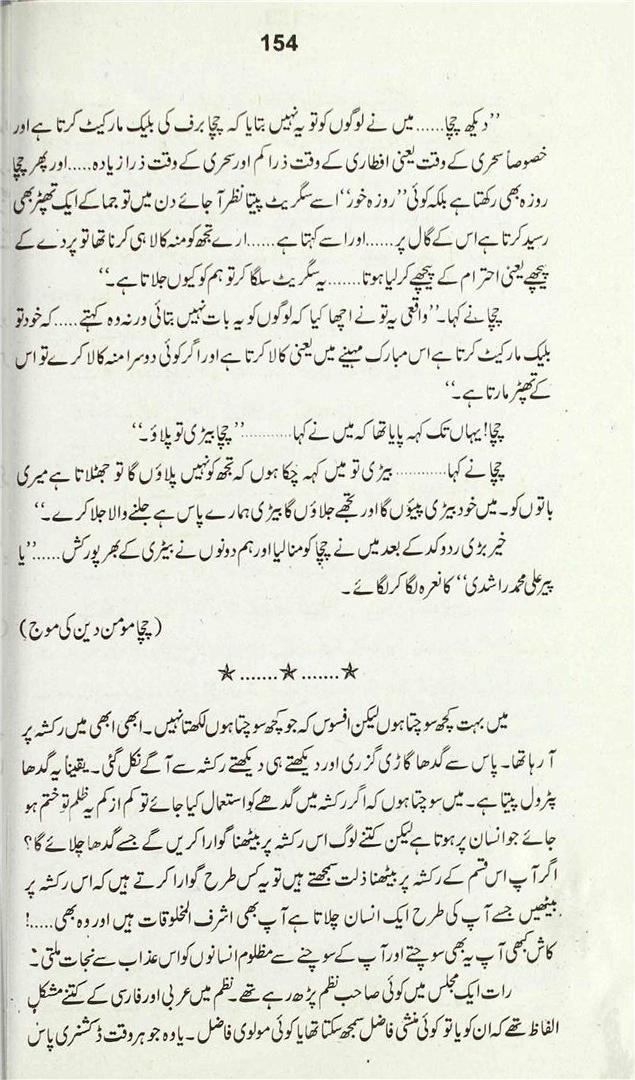 154
”دیکھ چچا......میں نے لوگوں کو تو یہ نہیں بتایا کہ چچا برف کی بلیک مارکیٹ کرتا ہے اور
خصوصاً سحری کے وقت یعنی افطاری کے وقت ذرا کم اور سحری کے وقت ذرا زیادہ.....اور پھر چچا
روزہ بھی رکھتا ہے بلکہ کوئی ”روزہ خور“ اسے سگریٹ پیتا نظر آ جائے دن میں تو جما کے ایک تھپڑ بھی
رسید کرتا ہے اس کے گال پر......اور اسے کہتا ہے......ارے تجھ کو منہ کالا ہی کرنا تھا تو پردے کے
پیچھے یعنی احترام کے پیچھے کر لیا ہوتا.......یہ سگریٹ سلگا کر تو ہم کو کیوں جلاتا ہے۔“
چچا نے کہا۔”واقعی یہ تو نے اچھا کیا کہ لوگوں کو یہ بات نہیں بتائی ورنہ وہ کہتے.....کہ خود تو
بلیک مارکیٹ کرتا ہے اس مبارک مہینے میں یعنی کالا کرتا ہے اور اگر کوئی دوسرا منہ کالا کرے تو اس
کے تھپڑ مارتا ہے۔“
چچا! یہاں تک کہہ پایا تھا کہ میں نے کہا............”چچا بیڑی تو پلاؤ۔“
چچا نے کہا............بیڑی تو میں کہہ چکا ہوں کہ تجھ کو نہیں پلاؤں گا تو جھٹلاتا ہے میری
باتوں کو۔ میں خود بیڑی پیئوں گا اور تجھے جلاؤں گا بیڑی ہمارے پاس ہے جلنے والا جلا کرے۔“
خیر بڑی ردوکد کے بعد میں نے چچا کو منا لیا اور ہم دونوں نے بیڑی کے بھرپور کش......”یا
پیر علی محمد راشدی“ کا نعرہ لگا کر لگائے۔
(چچا مومن دین کی موج)
★.......★.......★
میں بہت کچھ سوچتا ہوں لیکن افسوس کہ جو کچھ سوچتا ہوں لکھتا نہیں۔ ابھی ابھی میں رکشہ پر
آ رہا تھا۔ پاس سے گدھا گاڑی گزری اور دیکھتے ہی دیکھتے رکشہ سے آگے نکل گئی۔ یقیناً یہ گدھا
پٹرول پیتا ہے۔ میں سوچتا ہوں کہ اگر رکشہ میں گدھے کو استعمال کیا جائے تو کم از کم یہ ظلم تو ختم ہو
جائے جو انسان پر ہوتا ہے لیکن کتنے لوگ اس رکشہ پر بیٹھنا گوارا کریں گے جسے گدھا چلائے گا؟
اگر آپ اس قسم کے رکشہ پر بیٹھنا ذلت سمجھتے ہیں تو یہ کس طرح گوارا کرتے ہیں کہ اس رکشہ پر
بیٹھیں جسے آپ کی طرح ایک انسان چلاتا ہے آپ بھی اشرف المخلوقات ہیں اور وہ بھی.....!
کاش کبھی آپ یہ بھی سوچتے اور آپ کے سوچنے سے مظلوم انسانوں کو اس عذاب سے نجات ملتی۔
رات ایک مجلس میں کوئی صاحب نظم پڑھ رہے تھے۔ نظم میں عربی اور فارسی کے کتنے مشکل
الفاظ تھے کہ ان کو یا تو کوئی منشی فاضل سمجھ سکتا تھا یا کوئی مولوی فاضل۔ یا وہ جو ہر وقت ڈکشنری پاس